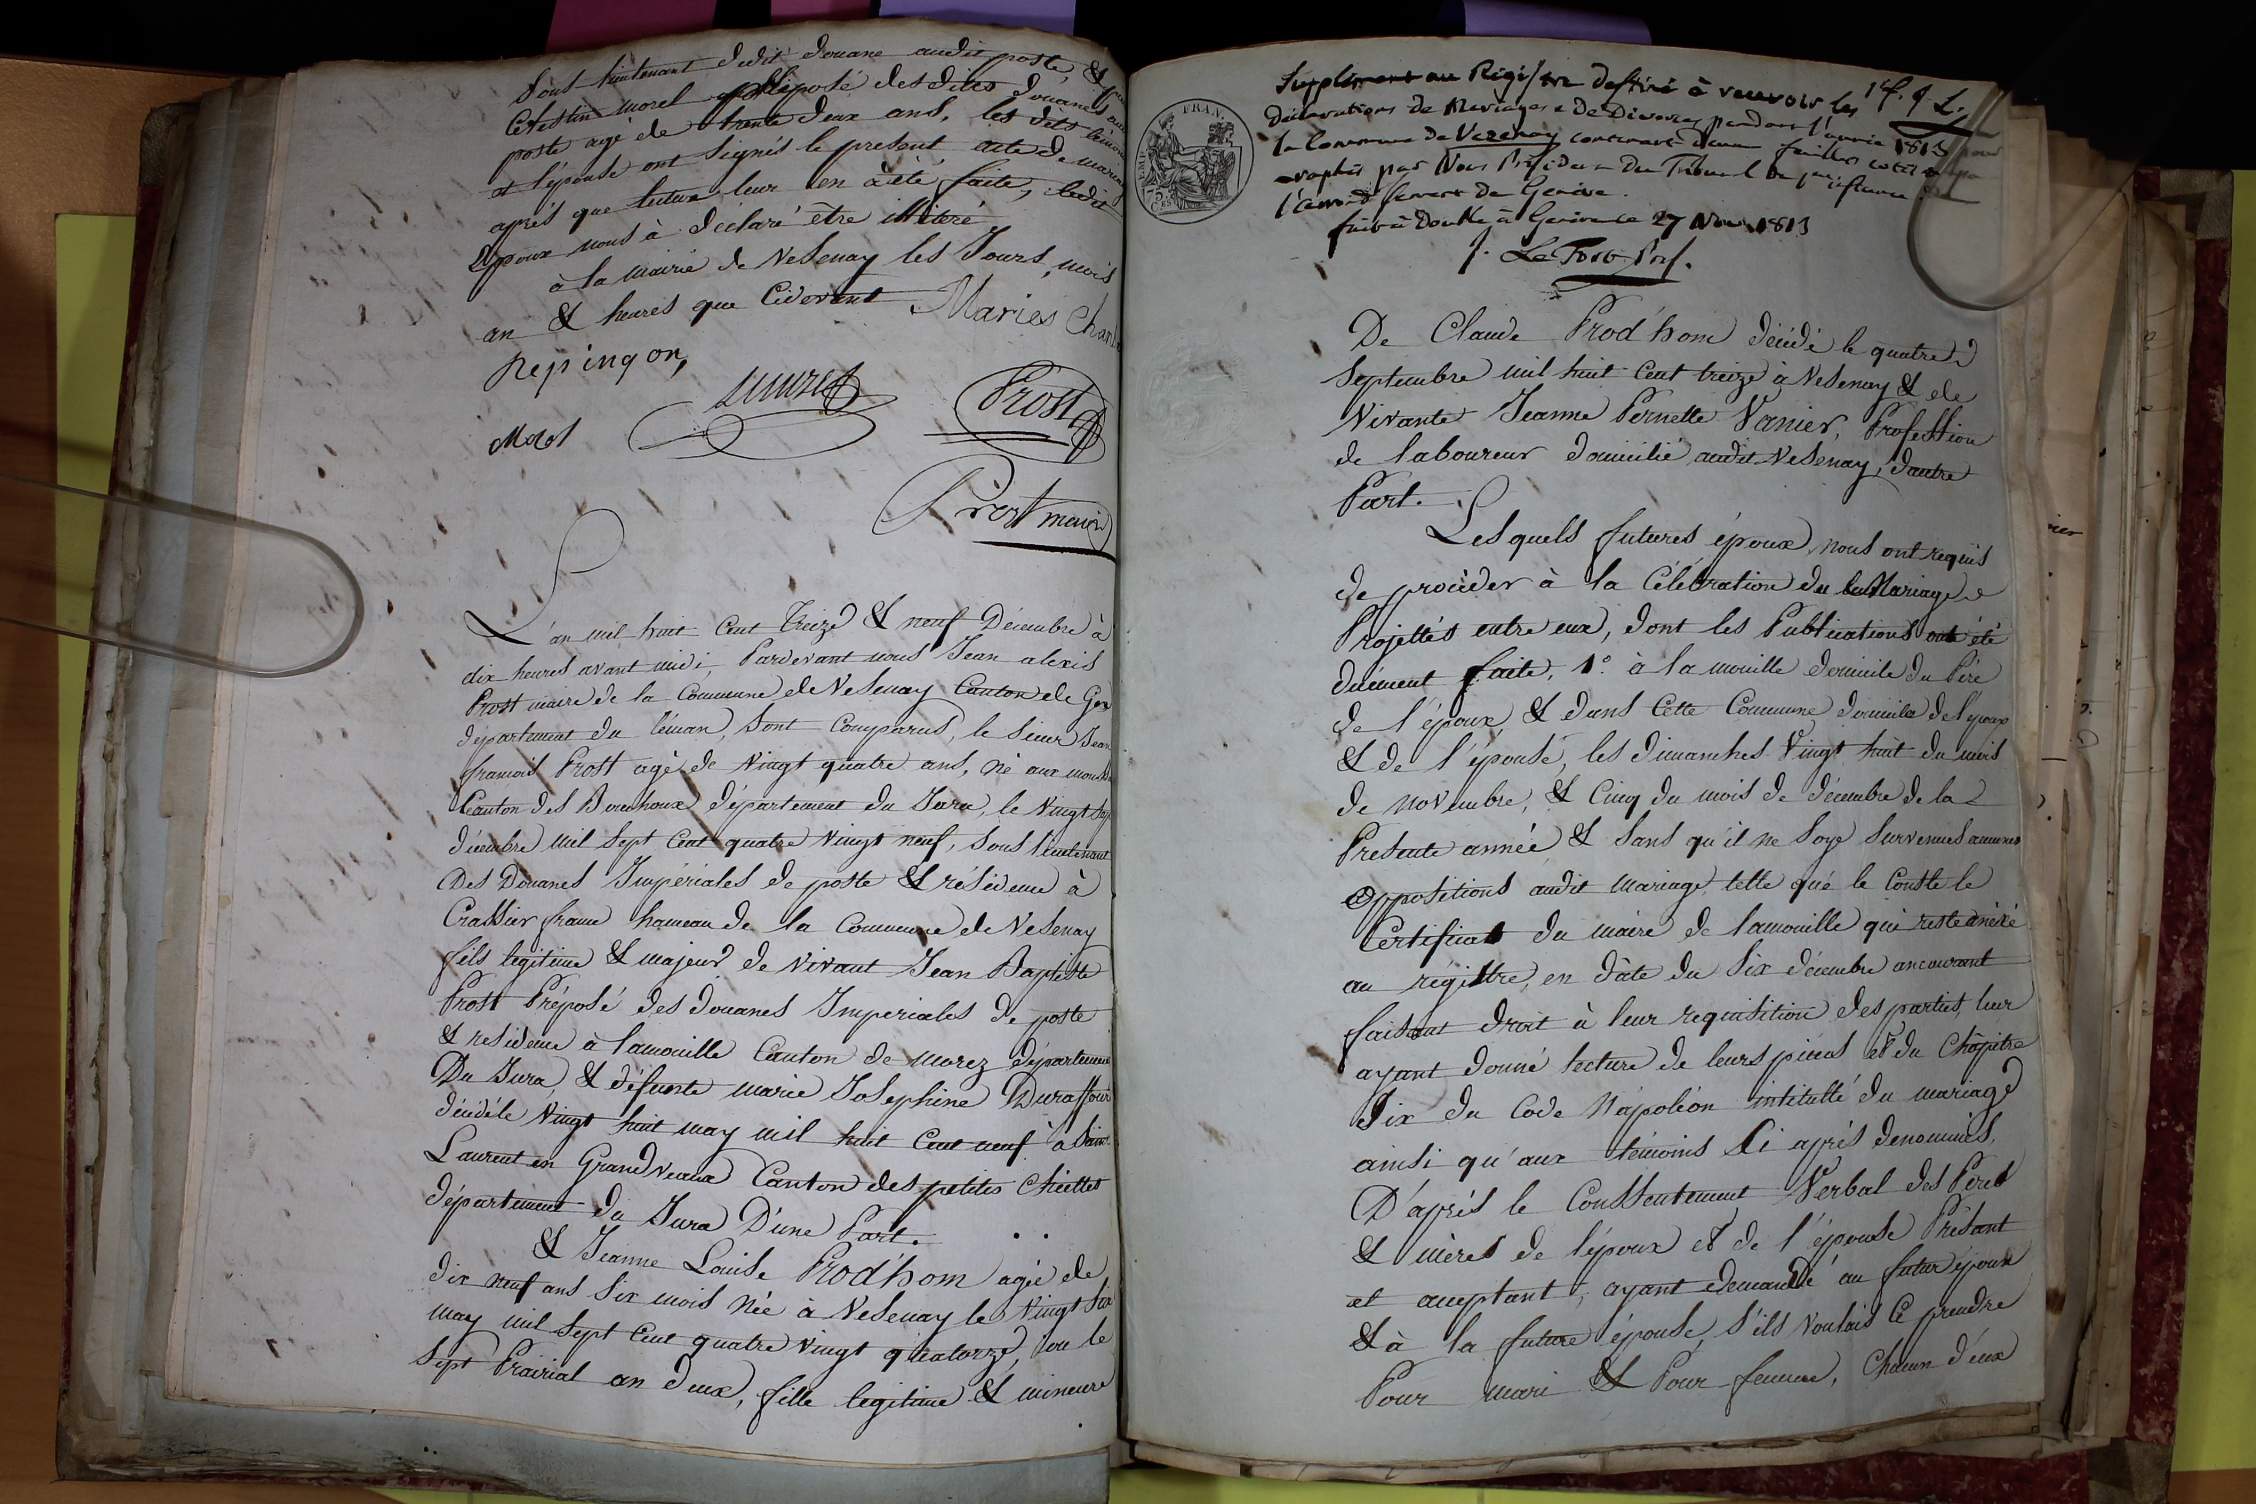 Sous lieutenant dedit Douane audit poste, &
Celestin morel préposé des dites Douanes au
poste agé de trente deux ans, les dits témoins
et l'épouse ont signés le present acte de mariage
aprés que lecture leur en à été faite, ledit
Epoux nous à déclaré être illiteré
à la mairie de Vesenay les Jours, mois
an & heures que Cidevant Maries Charl
Repingon,
Morel Prost
Prost maire
L'an mil huit Cent treize & neuf Décembre à
dix heures avant midi Pardevant nous Jean alexis
Prost maire de la Commune de Vesenay Canton de Gex
département du léman, Sont Comparus, le Sieur Jean
framois Prost agé de Vingt quatre ans, né aux mou
Canton des Bouchoux département du Jura, le Vingt sep
décembre mil Sept Cent quatre Vingt neuf, Sous lieutenant
Des Douanes Impériales de poste & résidence à
Crassier frame hameau de la Commune de Vesenay
fils legitime & majeur de vivant Jean Baptiste
Prost Préposé des douanes Imperiales de poste
& residence à lamouille Canton de morez département
Du Jura, & défunte marie Josephine Duraffour
décédéle Vingt huit may mil huit Cent neuf à Saint
Laurent en Grandveaux Canton des petites Chiettes
département du Jura D'une Part.
& Jeanne Louise Prod'hom agée de
dix neuf ans Six mois Née à Vesenay le Vingt Six
may mil Sept Cent quatre Vingt quatorze, ou le
Sept Prairial an deux, fille legitime & mineure
1er f. J L.
Supplément au Régistre destiné à recevoir les
déclarations de Mariages & de Divorces pendant l'année 1813 pour
la Commune de Vezenay contenant feuillets cotés &
raphés par Nous Président du Tribunal de 1ere instance de
l'arrond.t seant De Genève.
fait à Double à Genève ce 27 Nov 1813
J. LeFort Prés.
EMP. FRAN.
75 CES
De Claude Prod'hom décédé le quatre
Septembre mil huit Cent treize à Vesenay & de
Vivante Jeanne Pernette Vanier, Profession
de laboureur domicilié audit Vesenay, dautre
Part.
Lesquels futures époux, nous ont requis
de procéder à la Célébration du Mariage
Projettés entre eux, dont les Publications ont été
duement faite, 1º. à la mouille domicile du Pére
de l'époux, & dans Cette Commune domicile de l'époux
& de l'épouse, les dimanches Vingt huit du mois
de novembre, & Cinq du mois de décembre de la
Presente année & Sans qu'il ne Soye Survenues aucunes
oppositions audit mariage telle que le Conste le
Certificat du maire de lamouille qui reste annéxé
au régistre, en dâte du Six décembre ancourant
faisant droit à leur requisition des parties, leur
ayant donné lecture de leurs pieces et du Chapitre
Six du Code Napoléon intitullé du mariage
ainsi qu'aux témoins Ci aprés denommés,
D'aprés le Consentement Verbal des Peres
& mères de l'époux et de l'épouse Présant
et acceptant, ayant demandé au futur époux
& à la future épouse, s'ils Voulais Ce prendre
Pour mari & Pour femme, Chacun d'eux